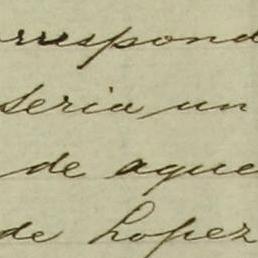 orrespond
seria un
de aque
de Lopez